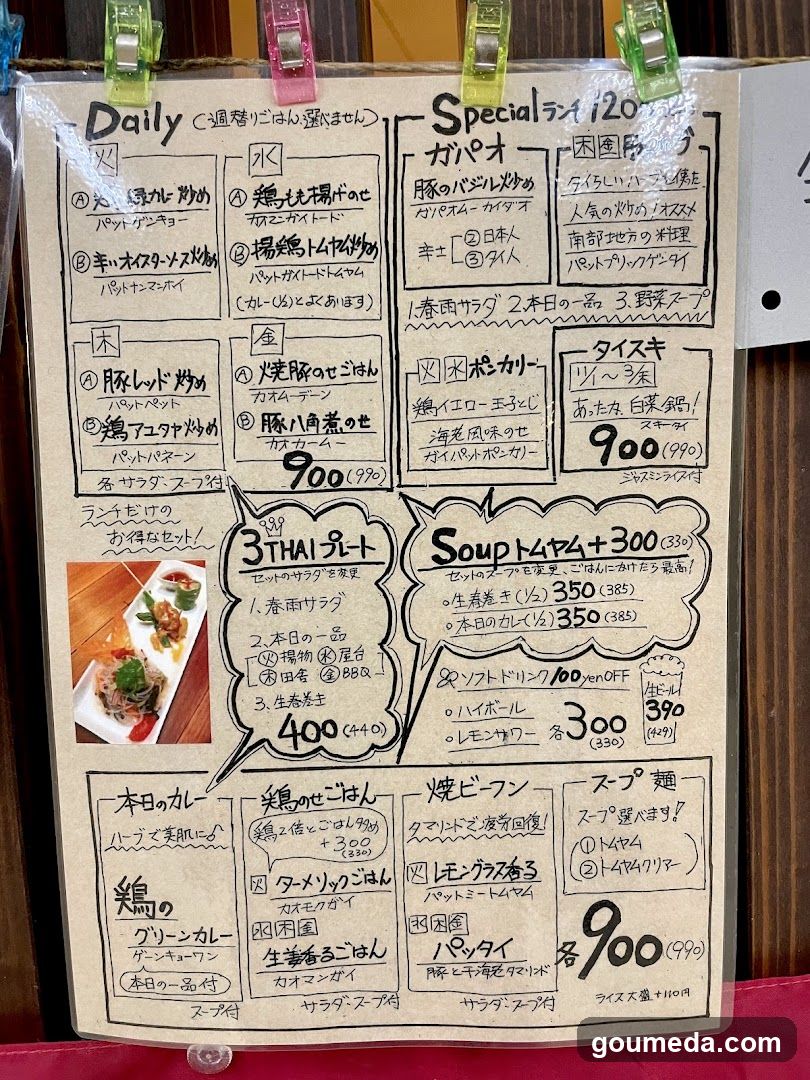 Daily (週替りごはん選べません)
火
Ⓐ カレー炒め
パットゲンキョー
Ⓑ 辛いオイスターソース炒め
パットナンマンホイ
水
Ⓐ 鶏もも揚げのせ
カオマンガイトード
Ⓑ 揚鶏トムヤム炒め
パットガイトードトムヤム
(カレー(½)とよくあいます)
木
Ⓐ 豚レッド炒め
パットペット
Ⓑ 鶏アユタヤ炒め
パットパネーン
金
Ⓐ 焼豚のせごはん
カオムーデーン
Ⓑ 豚八角煮のせ
カオカームー
900(990)
各サラダ・スープ付
Specialランチ 120
ガパオ
豚のバジル炒め
ガパオムーカイダオ
辛さ
②日本人
③タイ人
木金
タイらしいハーブを使った
人気の炒め!オススメ
南部地方の料理
パットプリックゲンタイ
1.春雨サラダ 2.本日の一品 3.野菜スープ
火水ポンカリー
鶏イエロー玉子とじ
海老風味のせ
ガイパットポンカリー
タイスキ
11/1〜3/末
あったか白菜鍋!
スキータイ
900(990)
ジャスミンライス付
ランチだけの
お得なセット!
3THAIプレート
セットのサラダを変更
1.春雨サラダ
2.本日の一品
火揚物 水屋台
木田舎 金BBQ
3.生春巻き
400(440)
Soupトムヤム+300(330)
セットのスープを変更、ごはんにかけたら最高!
○生春巻き(½)350(385)
○本日のカレー(½)350(385)
ソフトドリンク100yenOFF
○ハイボール
○レモンサワー 各300
(330)
生ビール
390
(429)
本日のカレー
ハーブで美肌に♪
鶏の
グリーンカレー
ゲーンキョーワン
本日の一品付
スープ付
鶏のせごはん
鶏2倍とごはん多め
+300
(330)
火 ターメリックごはん
カオモクガイ
水木金
生姜香るごはん
カオマンガイ
サラダ・スープ付
焼ビーフン
タマリンドで疲労回復!
火 レモングラス香る
パットミートムヤム
水木金
パッタイ
豚と干海老タマリンド
サラダ・スープ付
スープ麺
スープ選べます!
①トムヤム
②トムヤムクリアー
各900(990)
ライス大盛+110円
goumeda.com